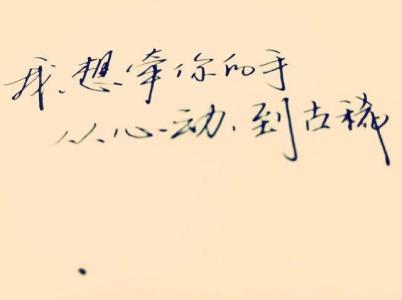 我想牵你的手
从心动,到古稀
.